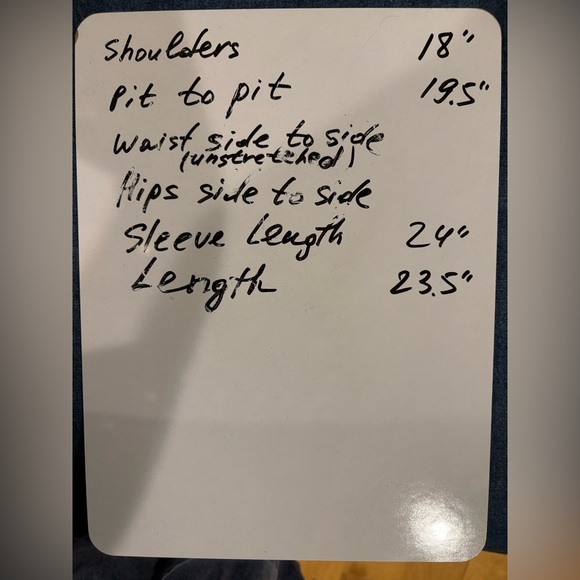 Shoulders 18"
Pit to pit 19.5"
Waist side to side
(unstretched)
Hips side to side
Sleeve Length 24"
Length 23.5"